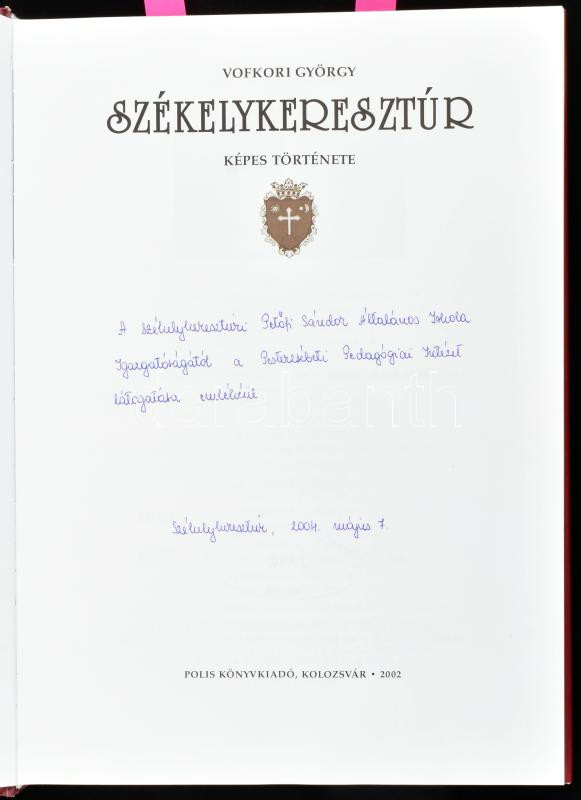 VOFKORI GYÖRGY
SZÉKELYKERESZTÚR
KÉPES TÖRTÉNETE
A székelykeresztúri Petőfi Sándor Általános Iskola
Igazgatóságától a Pesterzsébeti Pedagógiai Intézet
látogatása emlékéül.
darabanth
Székelykeresztúr, 2004. május 7.
POLIS KÖNYVKIADÓ, KOLOZSVÁR • 2002